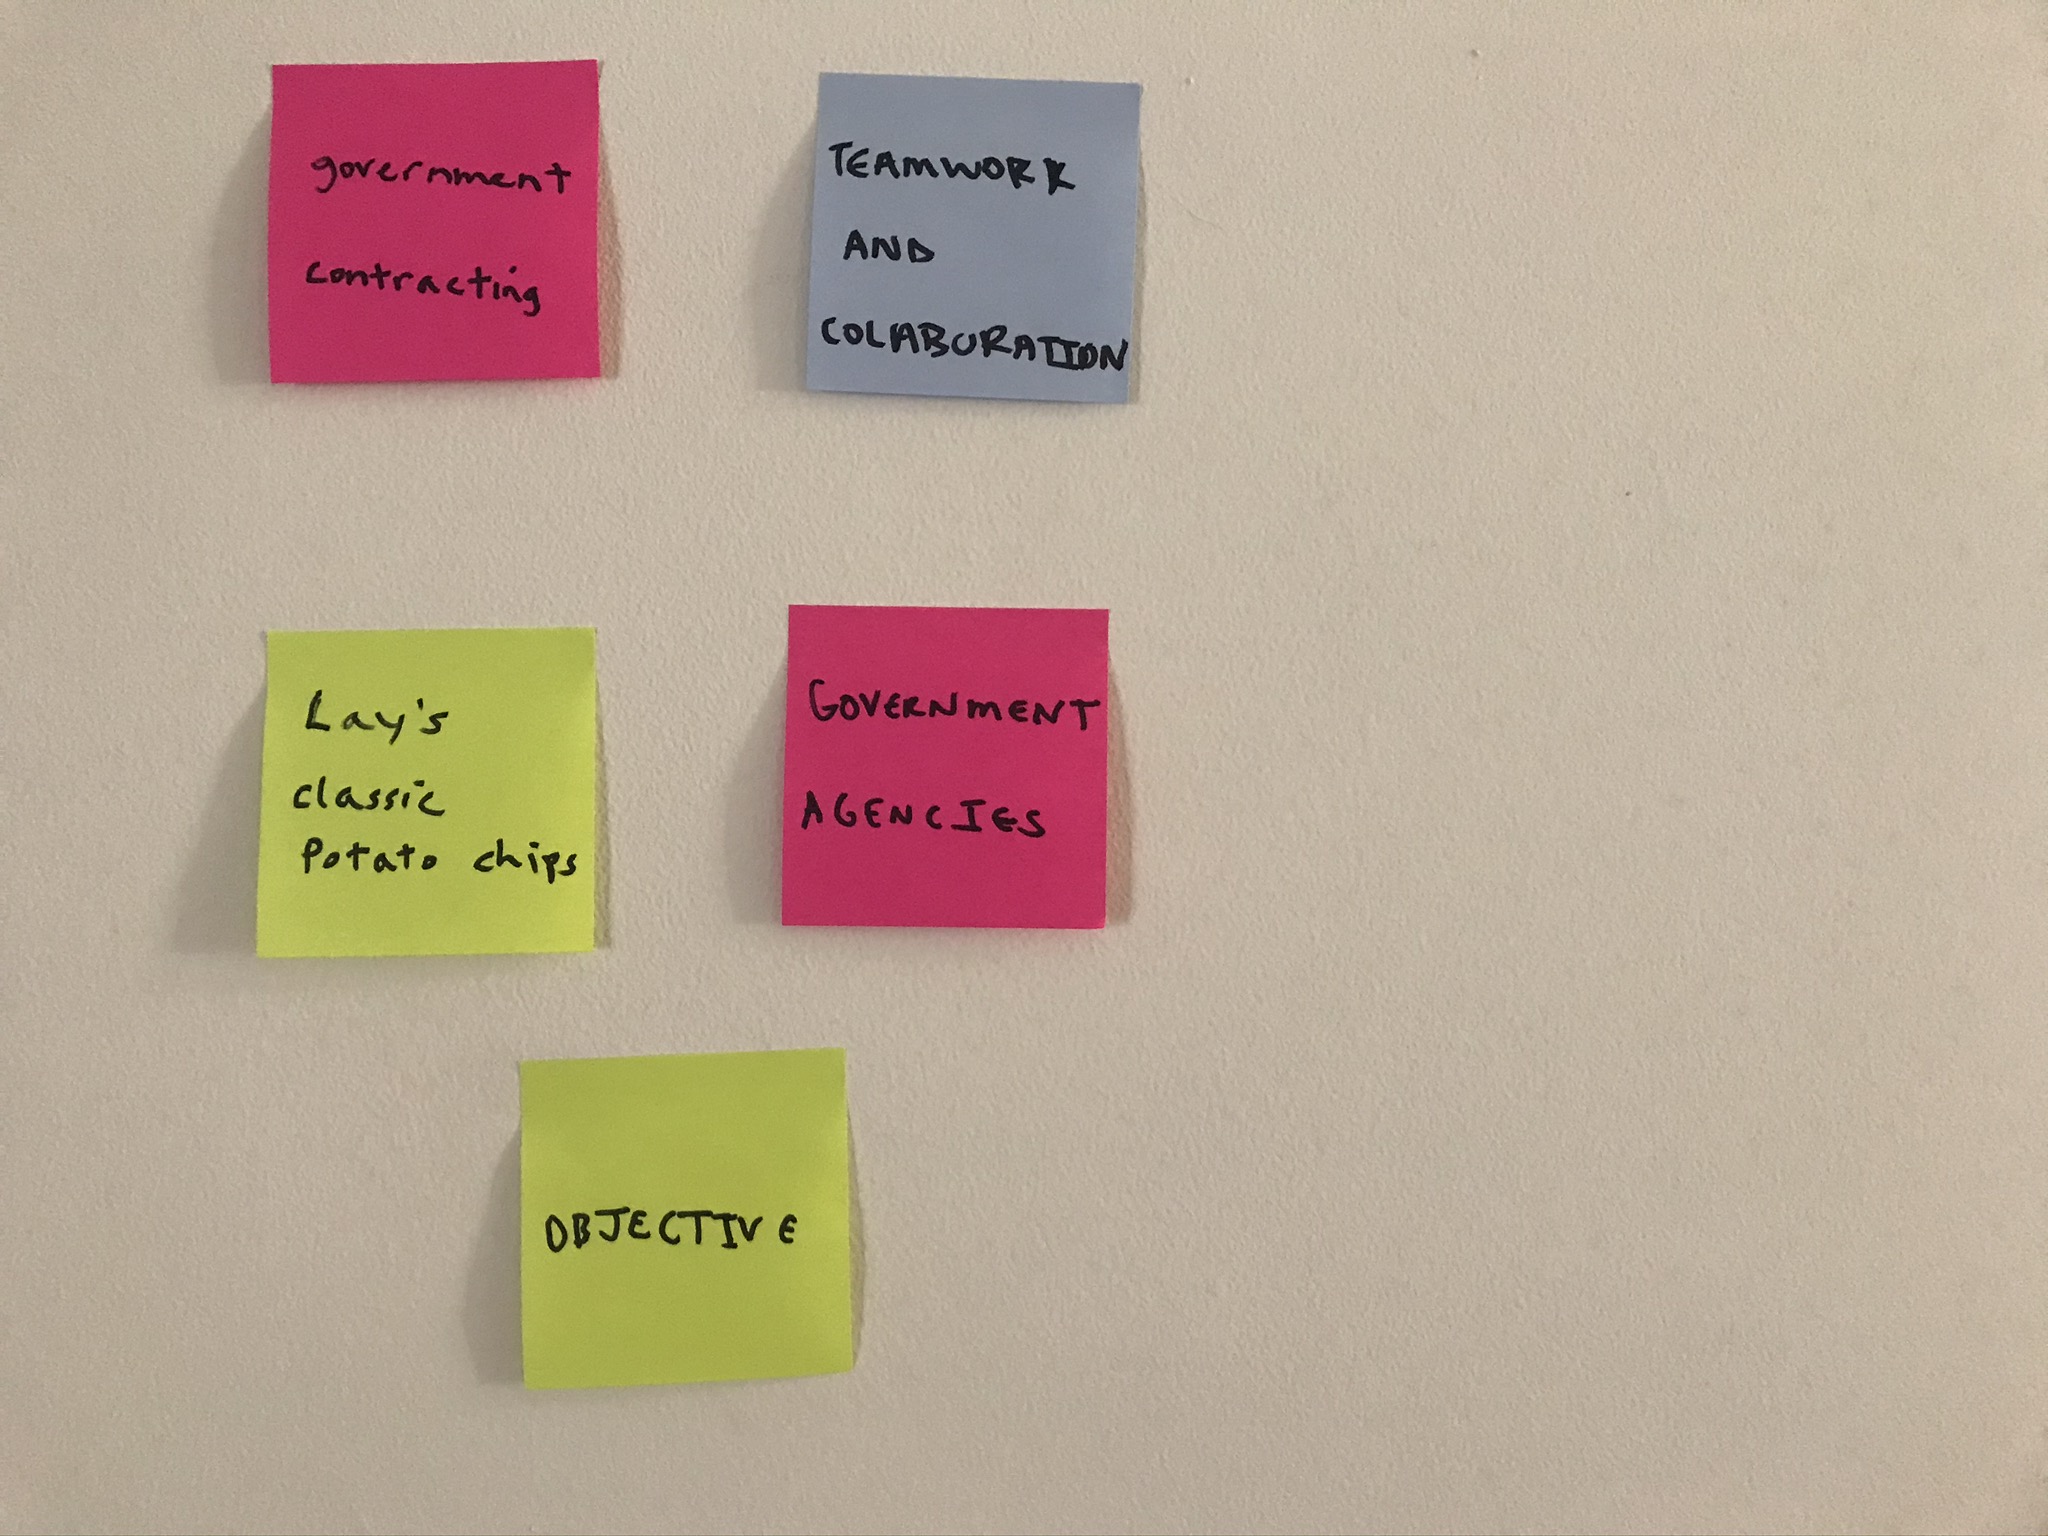 government
contracting
TEAMWORK
AND
COLABURATION
Lay's
classic
Potato chips
GOVERNMENT
AGENCIES
OBJECTIVE